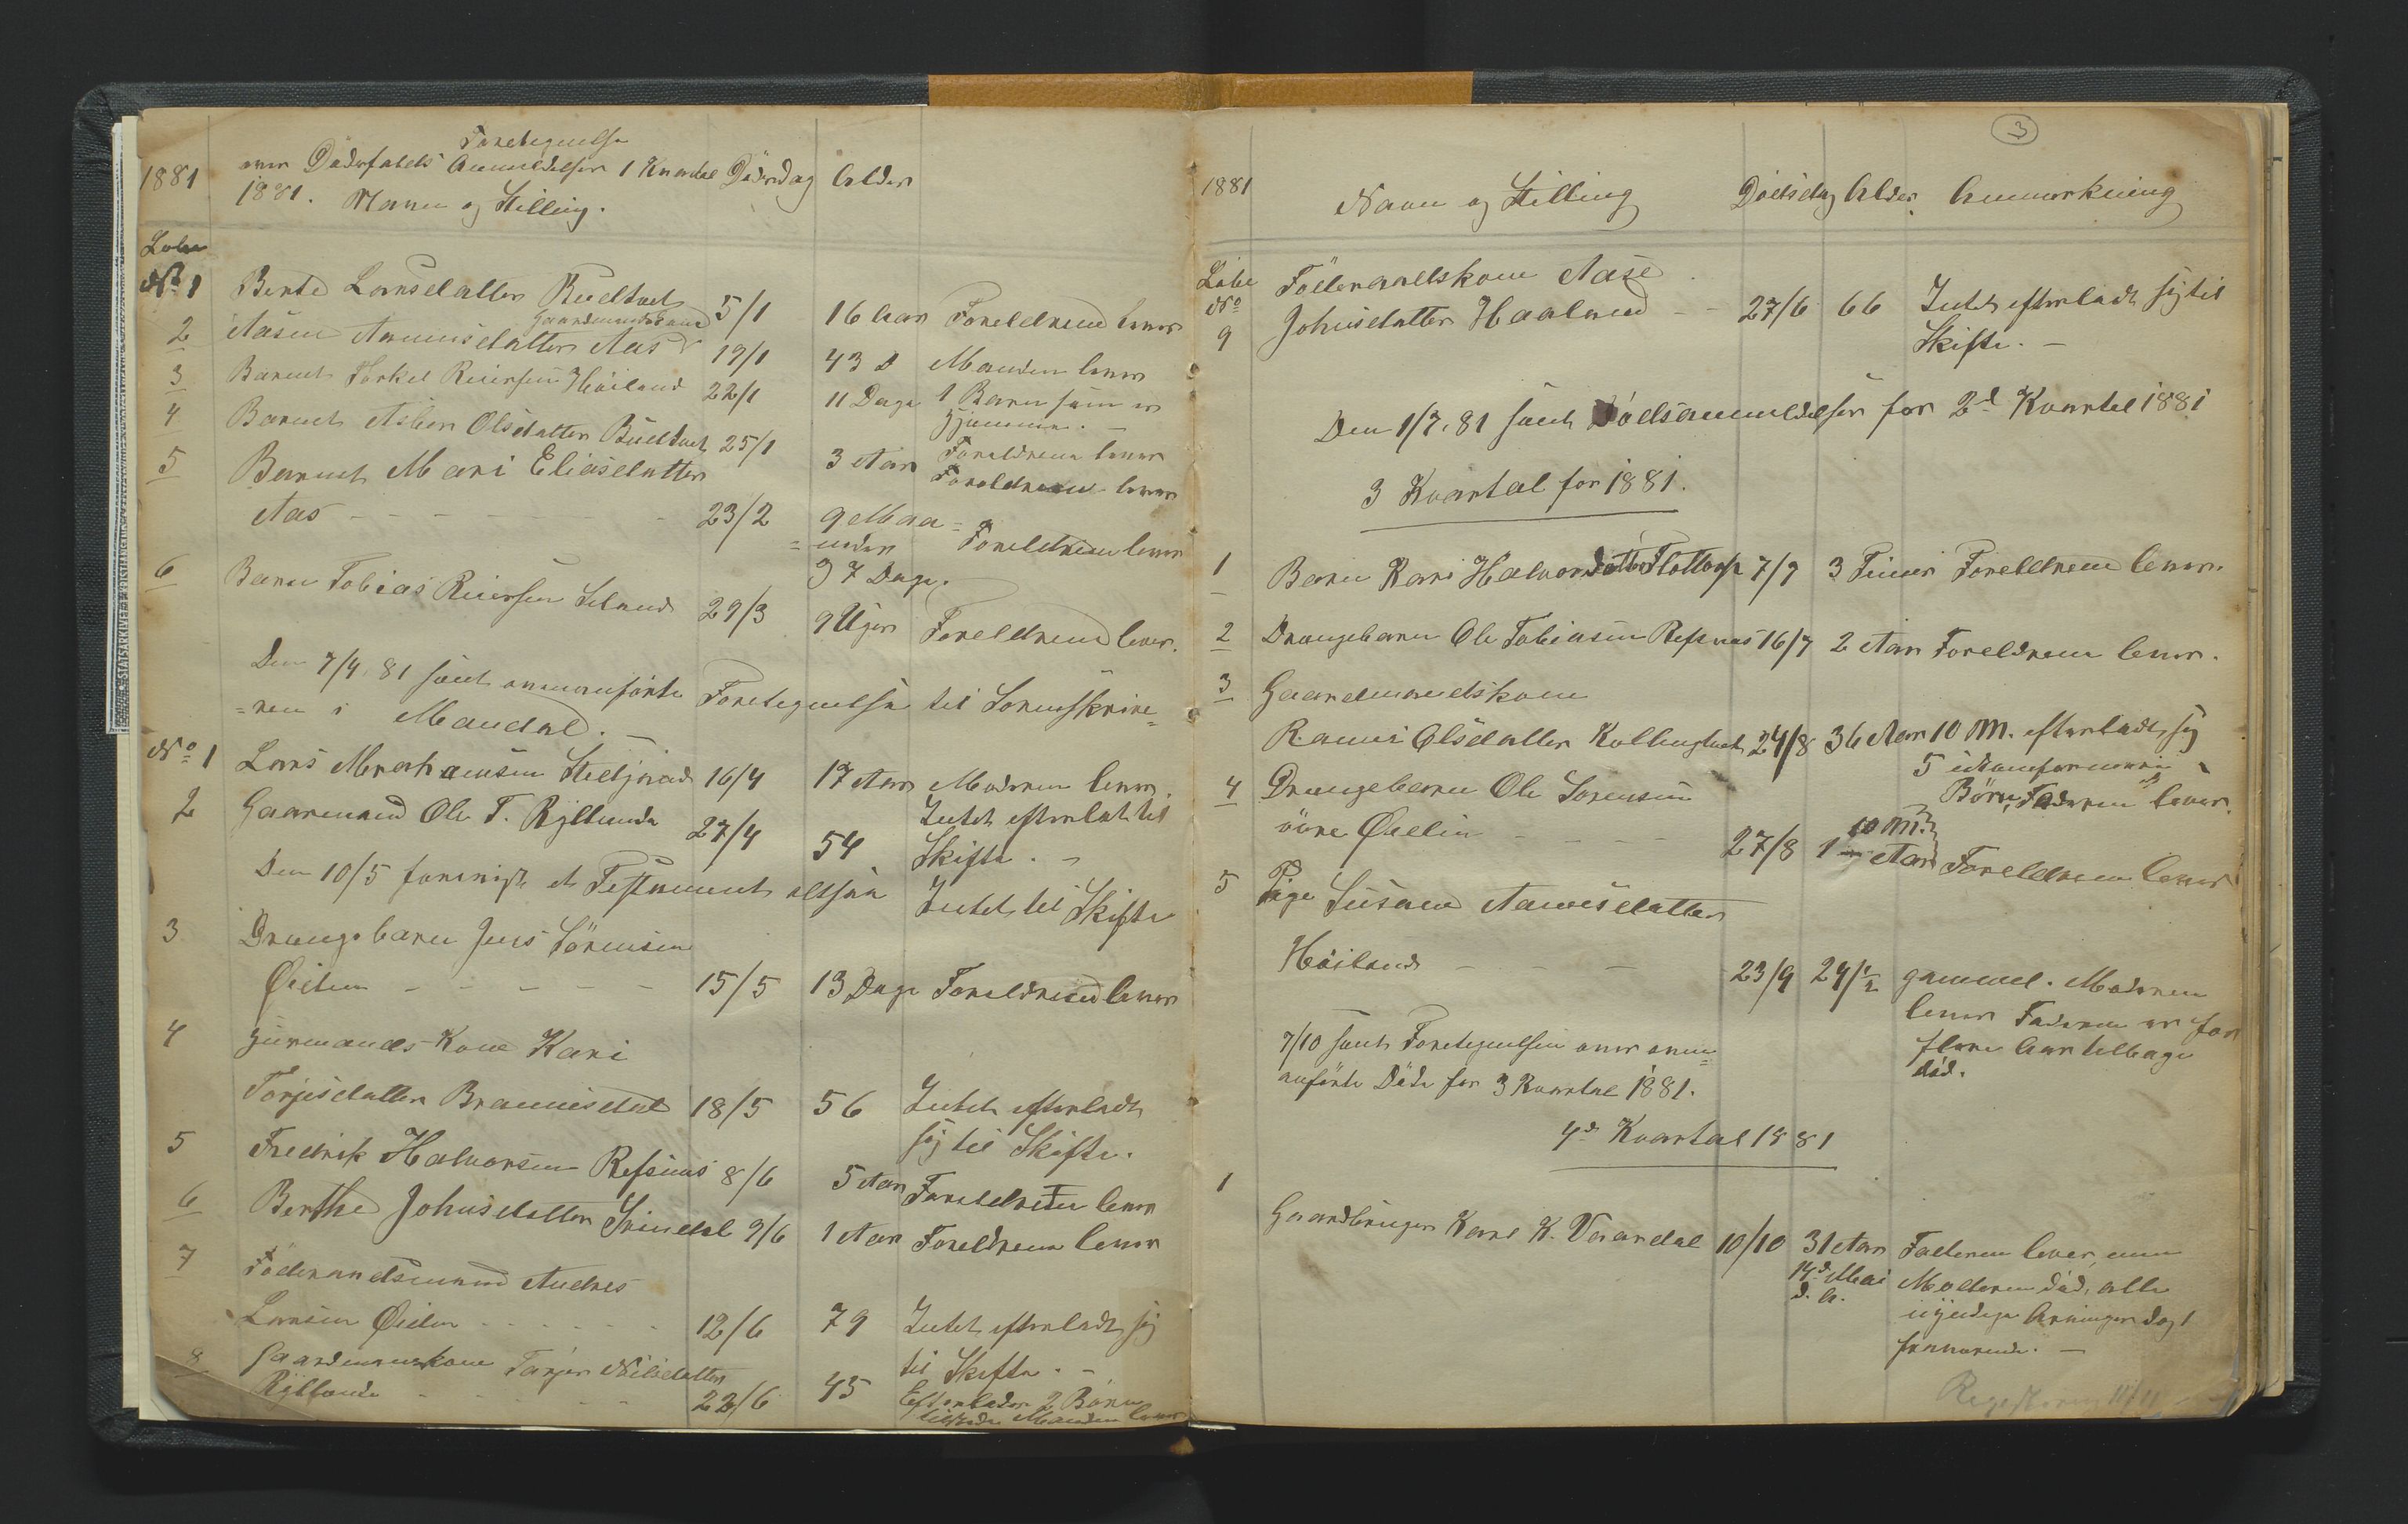 Fortegnelse
1881 over Dødsfalds Anmeldelser 1 Kvartal Dödsdag Alder
1881. Navn og Stilling.
Løbe
No 1 Berte Larsdatter Rudtvet 5/1 16 Aar Foreldrene lever
Gaardmandskone
2 Aasen Aanensdatter Aas 19/1 43 Manden lever
3 Barnet Torkel Reiersen Høiland 22/1 11 Dage 1 Barn som er
hjemme. -
4 Barnet Asber Olsdatter Rudtvet 25/1 3 Aar Foreldrene lever
5 Barnet Mari Eliasdatter Foreldrene lever
Aas - - - 23/2 9 Maa=
=neder Foreldrene lever
7 Dage.
6 Barn Tobias Reiersen Seland 29/3 9 Uger Foreldrene lever.
Den 7/4. 81 sendt ovenanførte Fortegnelse til Sorenskrive=
=ren i Mandal. -
No 1 Lars Abrahamsen 16/4 17 Aar Moderen lever.
2 Gaarmand Ole T. Røllunde 27/4 54 Intet efterlat til
Skifte. -
Den 10/5 forevist et Testament altsaa Intet til Skifte
3 Drengebarn Jens Sörensen
Øidlen - - - 15/5 13 Dage Foreldrene lever
4 Huusmands Kone Kari
Torjesdatter Brannesdal 18/5 56 Intet efterladt
sig til Skifte.
5 Fredrik Halvorsen Refsnes 8/6 5 Aar Foreldrene lever
6 Berthe Johnsdatter Svindal 9/6 1 Aar Foreldrene lever
7 Föderaadsmand Andres
Larsen Øidlen - - - 12/6 79 Intet efterladt sig
til Skifte. -
8 Gaardmandskone Tarjer Nilsdatter
Røllunde - - - 22/6 45 Efterlader 2 Børn
Manden lever
3
1881 Navn og Stilling Dödsdag Alder. Anmerkning
Løbe Föderaadskone Aase
No
9 Johnsdatter Haaland - - 27/6 66 Intet efterladt sig til
Skifte. -
Den 1/7. 81 sendt Dødsanmeldelser for 2d Kvartal 1881
3 Kvartal for 1881.
1 Barn Kari Halvordatter Flottorp 7/7 3 Timer Foreldrene lever.
2 Drengebarn Ole Tobiasen Refsnes 16/7 2 Aar Foreldrene lever.
3 Gaardmandskone
Rannei Olsdatter Kollungtveit 24/8 36 Aar 10 M. efterladt sig
5
Børn, Faderen lever.
4 Drengebarn Ole Sörensen 10 M.
övre Øidlen - - - 27/8 1 Aar Foreldrene lever
5 Pige Susane Aanesdatter
Høiland - - - 23/9 24 1/2 gammel. Moderen
lever Faderen er for
flere Aar tilbage
død.
7/10 sendt Fortegnelsen over oven=
anførte Døde for 3 Kvartal 1881.
4d Kvartal 1881
1
Gaardbruger Karl K. Vaardal 10/10 31 Aar Faderen lever, men
14d Mai Moderen død, alle
d. A. myndige Arvinger dog 1
fraværende. -